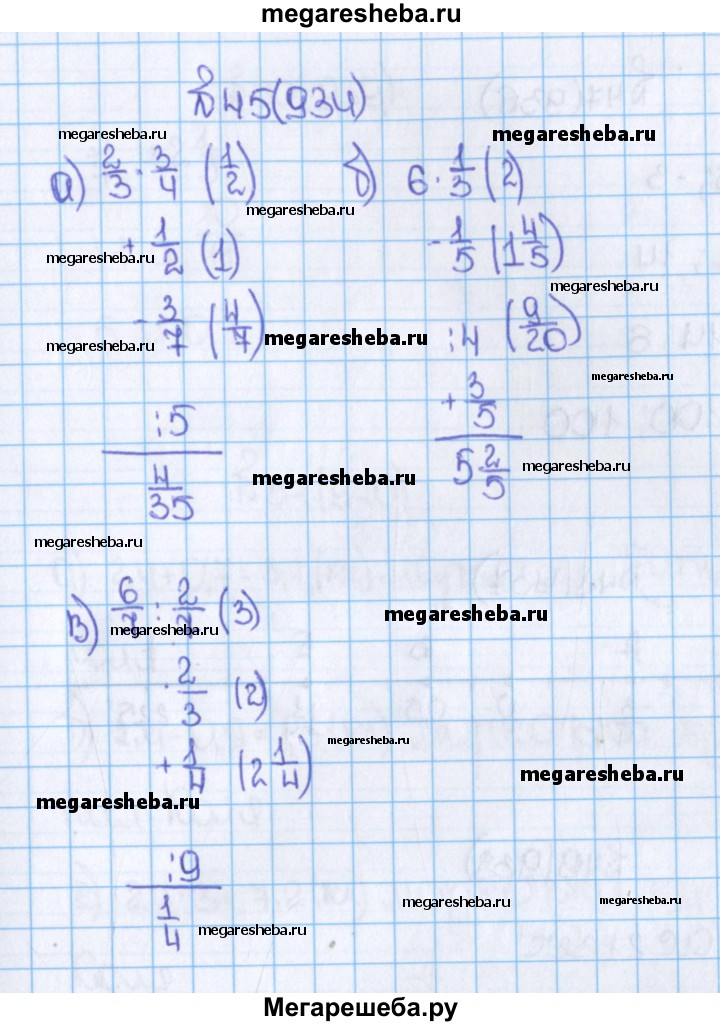 megaresheba.ru
№45(934)
megaresheba.ru
megaresheba.ru
а) 2/3 · 3/4 (1/2) б) 6 · 1/3 (2)
megaresheba.ru
+ 1/2 (1) - 1/5 (1 4/5)
megaresheba.ru
megaresheba.ru
- 3/7 (4/7) : 4 (9/20)
megaresheba.ru
megaresheba.ru
megaresheba.ru
: 5 + 3/5
4/35 5 2/5
megaresheba.ru
megaresheba.ru
megaresheba.ru
в) 6/7 : 2/7 (3)
megaresheba.ru
megaresheba.ru
· 2/3 (2)
+ 1/4 (2 1/4)
megaresheba.ru
megaresheba.ru
megaresheba.ru
: 9
1/4
megaresheba.ru
megaresheba.ru
megaresheba.ru
Мегарешеба.ру